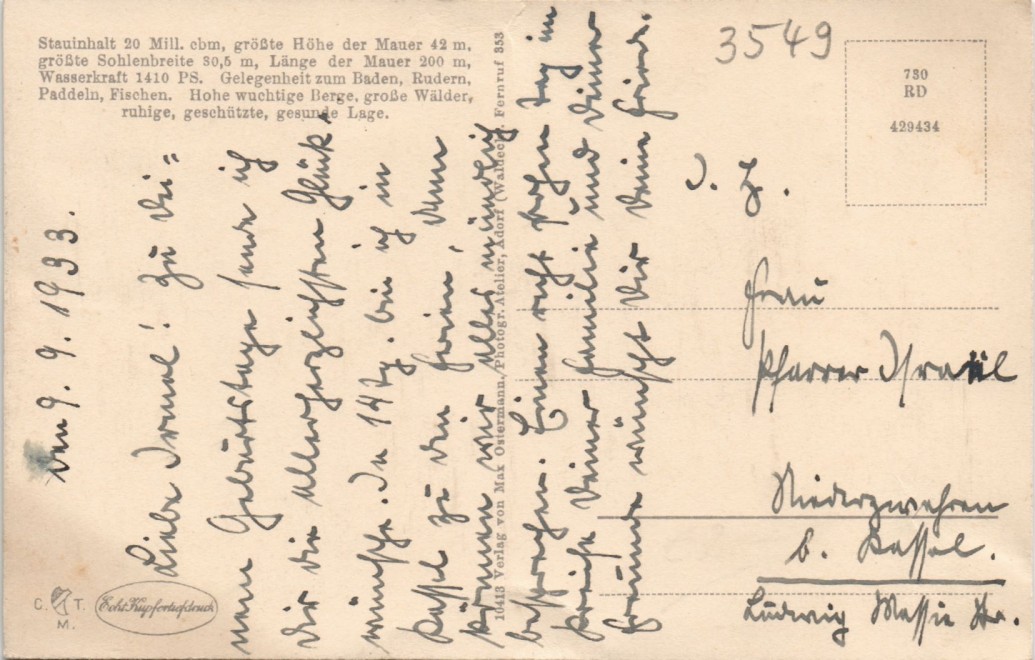 Stauinhalt 20 Mill. cbm, größte Höhe der Mauer 42 m,
größte Sohlenbreite 30,5 m, Länge der Mauer 200 m,
Wasserkraft 1410 PS. Gelegenheit zum Baden, Rudern,
Paddeln, Fischen. Hohe wuchtige Berge, große Wälder,
ruhige, geschützte, gesunde Lage.
den 9. 9. 1933.
Liebe Irmel! Zu dei=
nem Geburtstage sende ich
dir die allerherzlichsten Glück-
wünsche. In 14 Tg. bin ich in
Kassel zu den Ferien, dann
können wir alles mündlich
besprechen. Einen recht schönen Tag im
Kreise deiner Familie und deiner
Freunde wünscht dir dein
10413 Verlag von Max Ostermann, Photogr. Atelier, Adorf (Waldeck), Fernruf 353
C. T.
M.
Echt Kupfertiefdruck
3549
730
RD
429434
Frau
Pfarrer Israël
Niederzwehren
b. Kassel.
Ludwig Str.